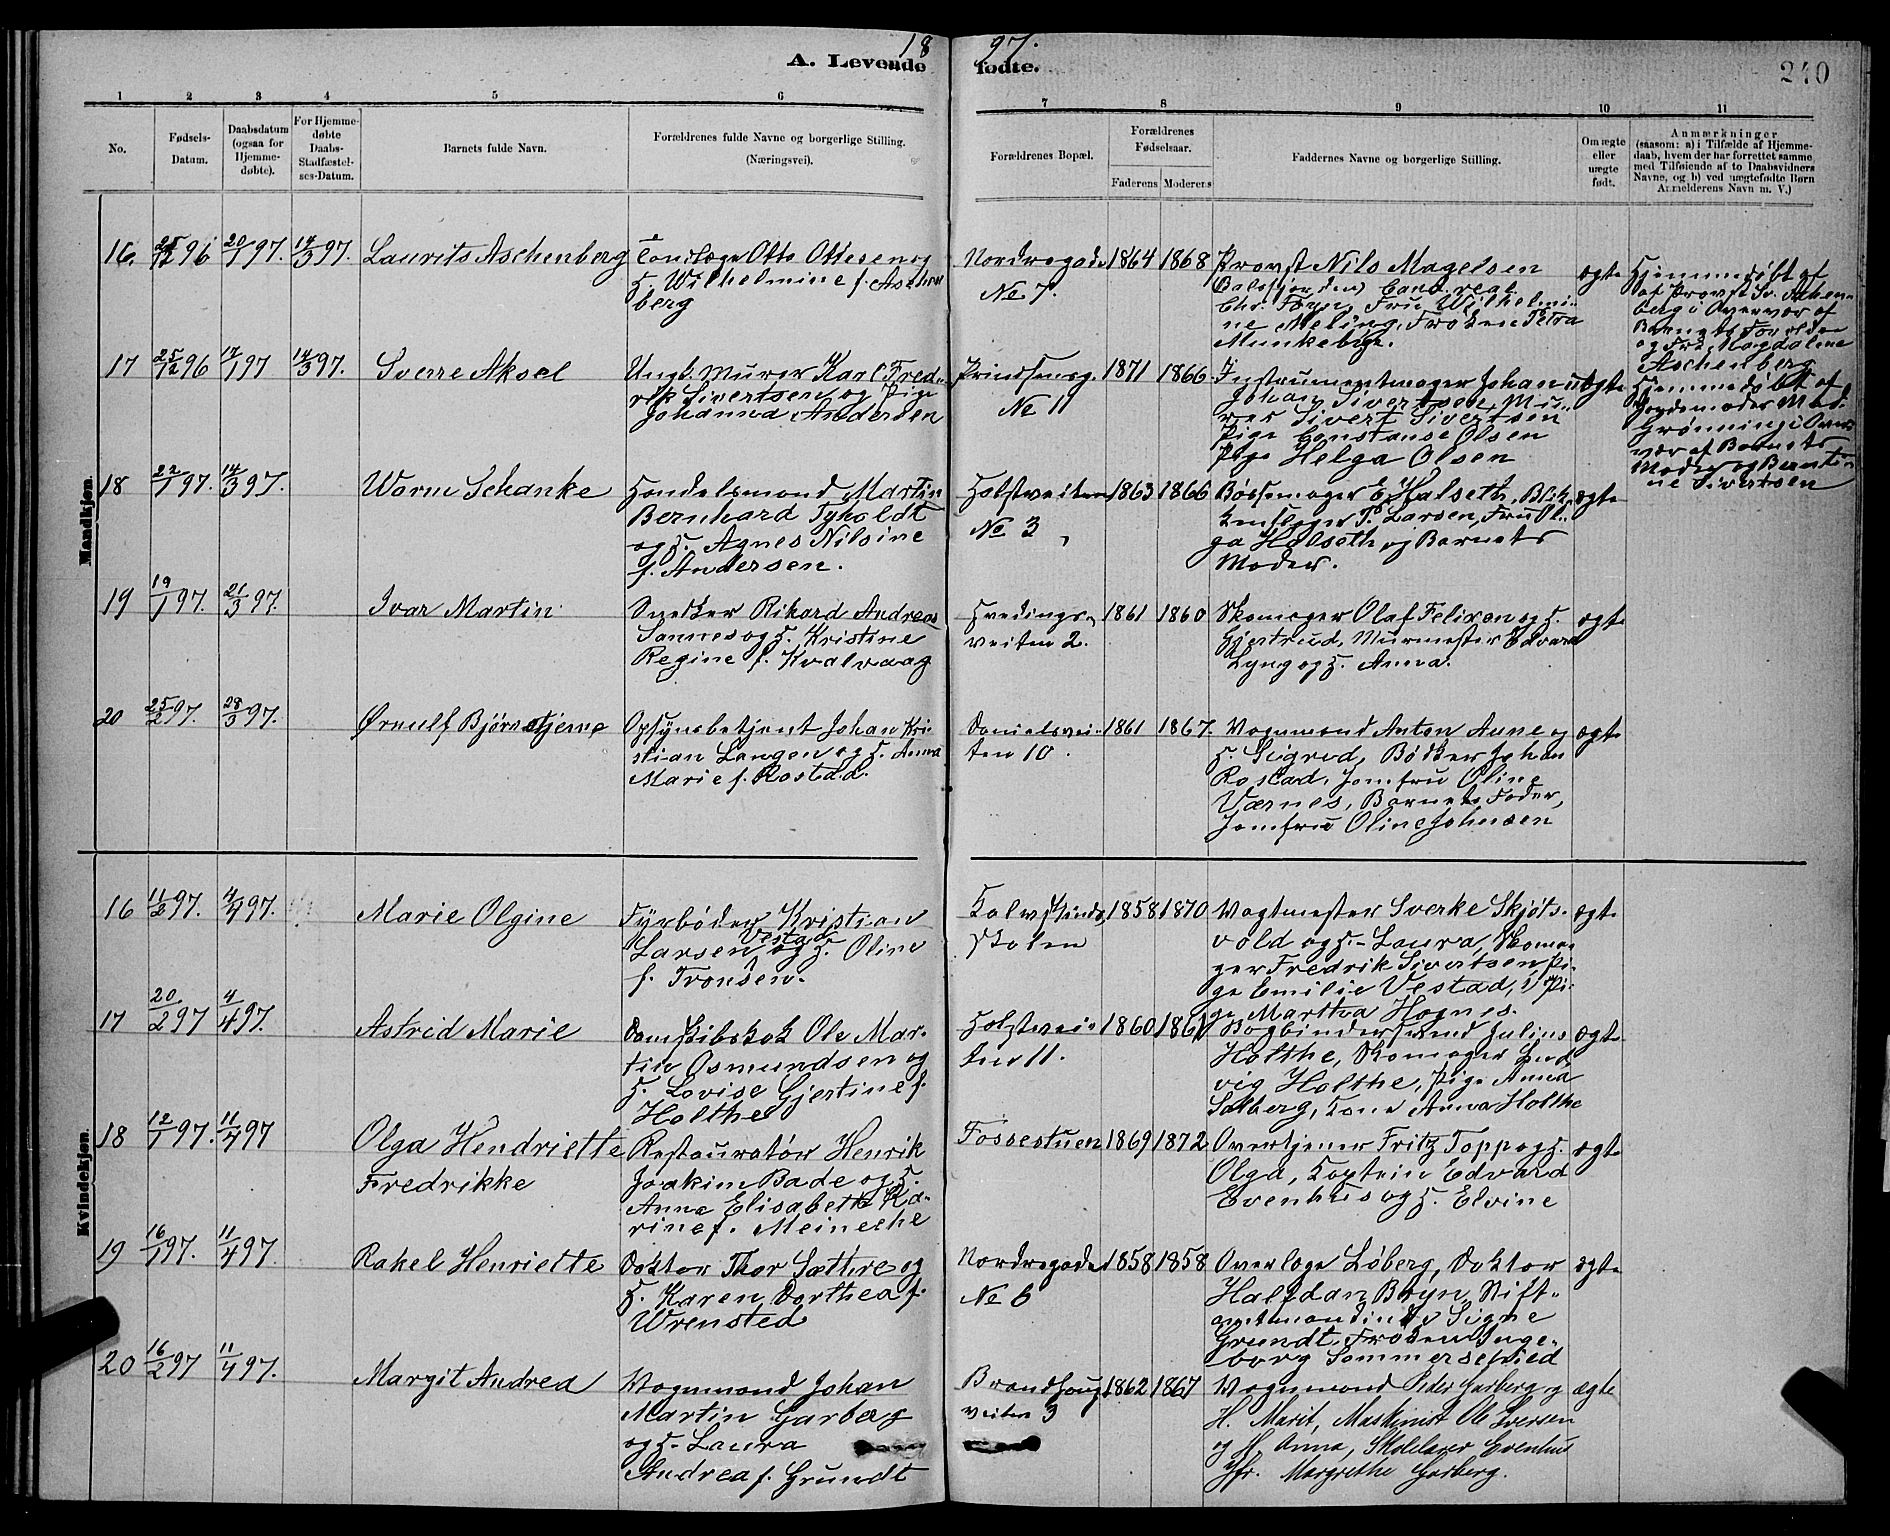 1897.
A. Levende fødte.
240
1 2 3 4 5 6 7 8 9 10 11
No.
Fødsels-
Datum.
Daabsdatum
(ogsaa for
Hjemme-
døbte).
For Hjemme-
døbte
Daabs-
Stadfæstel-
ses-Datum.
Barnets fulde Navn.
Forældrenes fulde Navne og borgerlige Stilling.
(Næringsvei).
Forældrenes Bopæl.
Forældrenes
Fødselsaar.
Faderens Moderens
Faddernes Navne og borgerlige Stilling.
Om ægte
eller
uægte
født.
Anmærkninger
(saasom: a) i Tilfælde af Hjemme-
daab, hvem der har forrettet samme
med Tilføiende af to Daabsvidners
Navne, og b) ved uægtefødte Børn
Anmelderens Navn m. V.)
Mandkjøn.
16. 25/12 96 20/1 97. 14/3 97. Laurits Aschenberg
Tandlæge Otto Ottesen og
H. Wilhelmine f. Aschen
berg
Nordregade
No 7.
1864 1868
Provst Nils Magelsen
Balsfjorden, Cand. real.
Chr. Føyn, Fru Wilhelmi-
ne Meling, Frøken Petra
Munkeby.
ægte
Hjemmedøbt af
af Provst Sv. Aschen-
berg i Overvær af
Barnets Forældre
og Frk. Magdalene
Aschenberg
17 25/12 96 17/1 97 14/3 97. Sverre Aksel
Ungk. Murer Karl Fred-
rik Sivertsen og Pige
Johanna Andersen
Prindsensg.
No 11
1871 1866
Instrumentmager Johan
Johan Sivertsen, Mu-
rer Sivert Sivertsen
Pige Constanse Olsen
Pige Helga Olsen
uægte
Hjemmedøbt af
Jordemoder Mad.
Grønning i Over
vær af Barnets
Moder og Bernti-
ne Sivertsen
18 22/1 97. 14/3 97. Worm Schanke
Handelsmand Martin
Bernhard Tyholdt
og H. Agnes Nilsine
f. Andersen.
Holstveiten
No 3
1863 1866
Bøssemager E. Halseth, Blik-
kenslager P. Larsen, Fru Ol-
ga Halseth og Barnets
Moder.
ægte
19 19/1 97. 21/3 97. Ivar Martin
Snedker Rikard Andreas
Sannes og H. Kristine
Regine f. Kvalvaag
Hvedings-
veiten 2.
1861 1860
Skomager Olaf Felixen og H.
Gjertrud, Murmester Edvard
Lyng og H. Anna.
ægte
20 25/2 97. 28/3 97. Ørnulf Bjørnstjerne
Opsynsbetjent Johan Kri-
stian Langen og H. Anna
Marie f. Rostad.
Danielsvei-
ten 10.
1861 1867.
Vognmand Anton Aune og
H. Sigrid, Bødker Johan
Rostad, Jomfru Oline
Værnes, Barnets Fader,
Jomfru Oline Johnsen
ægte
Kvindekjøn.
16 11/2 97. 4/4 97. Marie Olgine
Fyrbøder Kristian
Larsen Vestad og H. Oline
f. Tronsen.
Kalvskinds
skolen
1858 1870
Vagtmester Sverke Skjøts-
vold og H. Laura, Skoma-
ger Fredrik Sivertsen, Pi-
ge Emilie Vestad, Pi-
ge Marthea Hognes.
ægte
17 20/2 97 4/4 97. Astrid Marie
Damskibskok Ole Mar-
tin Osmundsen og
H. Lovise Gjertine f.
Holthe
Holstvei-
ten 11.
1860 1861
Bogbindersvend Julius
Holthe, Skomager Lud
vig Holthe, Pige Anna
Solberg, Kone Anna Holthe
ægte
18 12/1 97. 11/4 97 Olga Hendriette
Fredrikke
Restauratør Henrik
Joakim Bade og H.
Anna Elisabeth Ka-
rine f. Meineche
Fossestuen
1869 1872
Overtjener Fritz Topp og H.
Olga, Kaptein Edvard
Evenhus og H. Elvine
ægte
19 16/1 97. 11/4 97. Rakel Henriette
Doktor Thor Sættre og
H. Karen Dorthea f.
Wrensted
Nordregade
No 6
1858 1858
Overlæge Løberg, Doktor
Halfdan Bryn, Stift-
amtmandinde Signe
Grundt, Frøken Inge-
borg Sommerschied
ægte
20 16/2 97 11/4 97. Margit Andrea
Vognmand Johan
Martin Garberg
og H. Laura
Andrea f. Grundt
Brandhaug
veiten 3
1862 1867
Vognmand Peder Garberg og
H. Marit, Maskinist Ole Iversen
og H. Anna, Skolelærer Evenhus
Jfr. Margrethe Garberg.
ægte